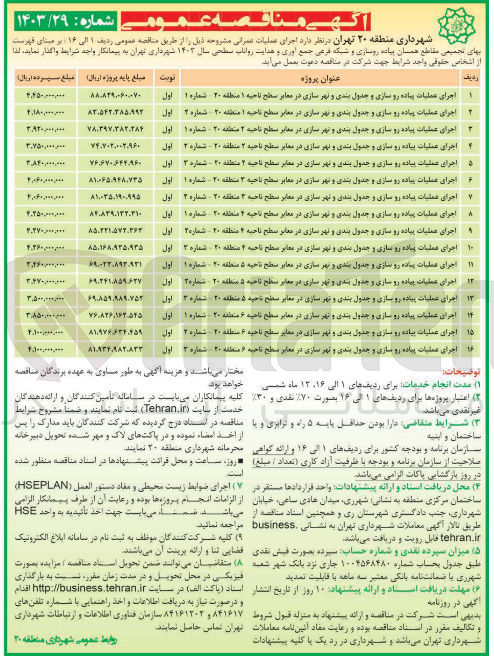 آگهی مناقصه عمومی شماره: ۱۴۰۳/۲۹
شهرداری منطقه ۲۰ تهران درنظر دارد اجرای عملیات عمرانی مشروحه ذیل را از طریق مناقصه عمومی ردیف ۱ الی ۱۶؛ بر مبنای فهرست
بهای تجمیعی مقاطع همسان پیاده روسازی و شبکه فرعی جمع آوری و هدایت رواناب سطحی سال ۱۴۰۳ شهرداری تهران به پیمانکار واجد شرایط واگذار نماید، لذا
از اشخاص حقوقی واجد شرایط جهت شرکت در مناقصه دعوت بعمل می‌آید.
ردیف عنوان پروژه نوبت مبلغ پایه پروژه (ریال) مبلغ سپرده(ریال)
۱ اجرای عملیات پیاده رو سازی و جدول بندی و نهر سازی در معابر سطح ناحیه ۱ منطقه ۲۰ - شماره ۱ اول ۸۸.۸۲۹.۰۶۰.۰۷۰ ۴.۴۵۰.۰۰۰.۰۰۰
۲ اجرای عملیات پیاده رو سازی و جدول بندی و نهر سازی در معابر سطح ناحیه ۱ منطقه ۲۰ - شماره ۲ اول ۸۳.۵۴۲.۳۸۵.۹۹۲ ۴.۱۸۰.۰۰۰.۰۰۰
۳ اجرای عملیات پیاده رو سازی و جدول بندی و نهر سازی در معابر سطح ناحیه ۲ منطقه ۲۰ - شماره ۱ اول ۷۸.۳۹۷.۳۸۲.۲۸۴ ۳.۹۲۰.۰۰۰.۰۰۰
۴ اجرای عملیات پیاده رو سازی و جدول بندی و نهر سازی در معابر سطح ناحیه ۲ منطقه ۲۰ - شماره ۲ اول ۷۴.۷۰۲.۰۰۲.۹۶۰ ۳.۷۵۰.۰۰۰.۰۰۰
۵ اجرای عملیات پیاده رو سازی و جدول بندی و نهر سازی در معابر سطح ناحیه ۲ منطقه ۲۰ - شماره ۳ اول ۷۶.۶۷۰.۶۴۴.۹۶۰ ۳.۸۴۰.۰۰۰.۰۰۰
۶ اجرای عملیات پیاده رو سازی و جدول بندی و نهر سازی در معابر سطح ناحیه ۳ منطقه ۲۰ - شماره ۱ اول ۸۱.۰۶۵.۹۴۸.۷۳۵ ۴.۰۶۰.۰۰۰.۰۰۰
۷ اجرای عملیات پیاده رو سازی و جدول بندی و نهر سازی در معابر سطح ناحیه ۳ منطقه ۲۰ - شماره۲ اول ۸۱.۰۳۵.۱۹۰.۹۹۵ ۴.۰۶۰.۰۰۰.۰۰۰
۸ اجرای عملیات پیاده رو سازی و جدول بندی و نهر سازی در معابر سطح ناحیه ۴ منطقه ۲۰ - شماره ۱ اول ۸۴.۸۳۹.۱۳۲.۳۱۰ ۴.۲۵۰.۰۰۰.۰۰۰
۹ اجرای عملیات پیاده رو سازی و جدول بندی و نهر سازی در معابر سطح ناحیه ۴ منطقه ۲۰ - شماره۲ اول ۸۵.۲۲۱.۵۷۲.۳۶۳ ۴.۲۷۰.۰۰۰.۰۰۰
۱۰ اجرای عملیات پیاده رو سازی و جدول بندی و نهر سازی در معابر سطح ناحیه ۴ منطقه ۲۰ - شماره۳ اول ۸۵.۱۶۸.۹۳۵.۹۳۵ ۴.۲۶۰.۰۰۰.۰۰۰
۱۱ اجرای عملیات پیاده رو سازی و جدول بندی و نهر سازی در معابر سطح ناحیه ۵ منطقه ۲۰ - شماره ۱ اول ۶۹.۰۲۳.۸۹۳.۹۲۱ ۳.۴۶۰.۰۰۰.۰۰۰
۱۲ اجرای عملیات پیاده رو سازی و جدول بندی و نهر سازی در معابر سطح ناحیه ۵ منطقه ۲۰ - شماره۲ اول ۶۹.۲۴۱.۸۵۹.۶۲۷ ۳.۴۷۰.۰۰۰.۰۰۰
۱۳ اجرای عملیات پیاده رو سازی و جدول بندی و نهر سازی در معابر سطح ناحیه ۵ منطقه ۲۰ - شماره۳ اول ۶۹.۸۵۹.۹۸۹.۷۵۲ ۳.۵۰۰.۰۰۰.۰۰۰
۱۴ اجرای عملیات پیاده رو سازی و جدول بندی و نهر سازی در معابر سطح ناحیه ۶ منطقه ۲۰ - شماره ۱ اول ۷۶.۸۲۶.۱۶۲.۵۴۵ ۳.۸۵۰.۰۰۰.۰۰۰
۱۵ اجرای عملیات پیاده رو سازی و جدول بندی و نهر سازی در معابر سطح ناحیه ۶ منطقه ۲۰ - شماره ۲ اول ۸۱.۹۷۶.۶۳۴.۴۵۹ ۴.۱۰۰.۰۰۰.۰۰۰
۱۶ اجرای عملیات پیاده رو سازی و جدول بندی و نهر سازی در معابر سطح ناحیه ۶ منطقه ۲۰ - شماره ۳ اول ۸۱.۹۳۴.۹۸۲.۸۳۳ ۴.۱۰۰.۰۰۰.۰۰۰
توضیحات:
۱) مدت انجام خدمات: برای ردیف‌های ۱ الی ۱۶، ۱۲ ماه شمسی
۲) اعتبار پروژه‌ها برای ردیف‌های ۱ الی ۱۶ بصورت ۷۰٪ نقدی و ۳۰٪
غیرنقدی می‌باشد.
۳) شرایط متقاضی: دارا بودن حداقل پایه ۵ راه و ترابری و یا
ساختمان و ابنیه
سازمان برنامه و بودجه کشور برای ردیف‌های ۱ الی ۱۶ و ارائه گواهی
صلاحیت از سازمان برنامه و بودجه با ظرفیت آزاد کاری (تعداد / مبلغ)
در روز بازگشایی پاکات الزامی می‌باشد.
۴) محل دریافت اسناد و ارائه پیشنهادات: واحد قراردادها مستقر در
ساختمان مرکزی منطقه به نشانی: شهرری، میدان هادی ساعی، خیابان
شهرداری، جنب دادگستری شهرستان ری و همچنین اسناد مناقصه از
طریق تالار آگهی معاملات شهرداری تهران به نشانی business.
tehran.ir قابل رویت و دریافت می‌باشد.
۵) میزان سپرده نقدی و شماره حساب: سپرده بصورت فیش نقدی
طبق جدول بحساب شماره ۱۰۰۴۵۶۸۴۸۰ جاری نزد بانک شهر شعبه
شهرری یا ضمانتنامه بانکی معتبر سه ماهه با قابلیت تمدید
۶) مهلت دریافت اسناد و ارائه پیشنهاد: ۱۰ روز از تاریخ انتشار
آگهی در روزنامه
بدیهی است شرکت در مناقصه و ارائه پیشنهاد به منزله قبول شروط
و تکالیف مقرر در اسناد مناقصه بوده و رعایت مفاد آئین‌نامه معاملات
شهرداری تهران می‌باشد و شهرداری در رد یک یا کلیه پیشنهادات
مختار می‌باشد و هزینه آگهی به طور مساوی به عهده برندگان مناقصه
خواهد بود.
کلیه پیمانکاران می‌بایست در سامانه تأمین‌کنندگان و ارائه‌دهندگان
خدمت از سایت (Tehran.ir) ثبت نام نمایند و ضمنا مشروح شرایط
مناقصه در اسناد درج گردیده که شرکت کنندگان باید مدارک را پس
از اخذ امضاء نموده و در پاکت‌های لاک و مهر شده تحویل دبیرخانه
محرمانه شهرداری منطقه ۲۰ نمایند.
• روز، ساعت و محل قرائت پیشنهادات در اسناد مناقصه منظور شده
است.
۷) اجرای ضوابط زیست محیطی و مفاد دستور العمل (HSEPLAN)
از الزامات انجام پروژه‌ها بوده و رعایت آن از طرف پیمانکار الزامی
می‌باشد. ضمناً، می‌بایست جهت اخذ تأئیدیه به واحد HSE
مراجعه نمائید.
۹) کلیه شرکت‌کنندگان موظف به ثبت نام در سامانه ابلاغ الکترونیک
قضایی ثنا و ارائه پرینت آن می‌باشند.
۸) متقاضیان می‌توانند ضمن تحویل اسناد مناقصه / مزایده بصورت
فیزیکی در محل تحویل و در مدت زمان مقرر، نسبت به بارگذاری
اسناد (پاکت الف) در سایت http://business.tehran.ir اقدام
و درصورت نیاز به دریافت اطلاعات و اخذ راهنمایی با شماره تلفن‌های
۸۴۱۶۱۷ و ۸۴۱۶۱۲۰۲ سازمان فناوری اطلاعات و ارتباطات شهرداری
تهران تماس حاصل نمایند.
روابط عمومی شهرداری منطقه ۲۰